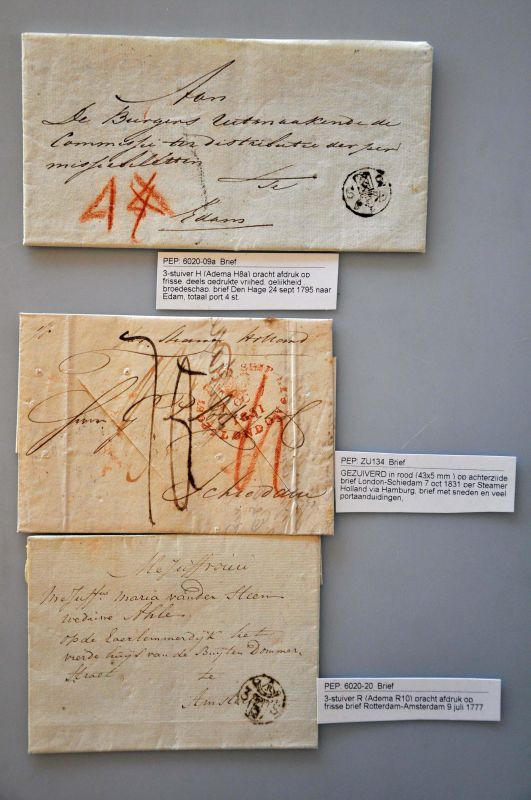 Aan
De Burgers Uitmaakende de
Commissie ter distributie der per
missiebilletten
te
Edam
PEP: 6020-09a Brief
3-stuiver H (Adema H8a) pracht afdruk op
frisse, deels gedrukte vrijheid, gelijkheid,
broedeschap, brief Den Hage 24 sept 1795 naar
Edam, totaal port 4 st.
Steamer Holland
SHIP
LONDON
Schiedam
PEP: ZU134 Brief
GEZUIVERD in rood (43x5 mm ) op achterzijde
brief London-Schiedam 7 oct 1831 per Steamer
Holland via Hamburg, brief met sneden en veel
portaanduidingen,
Mejuffrouw
Mejuffw Maria vander Steen
weduwe Ahle
op de Haerlemmerdijk het
vierde huijs van de Buyten Dommer
Straet
te
Amst
PEP: 6020-20 Brief
3-stuiver R (Adema R10) pracht afdruk op
frisse brief Rotterdam-Amsterdam 9 juli 1777